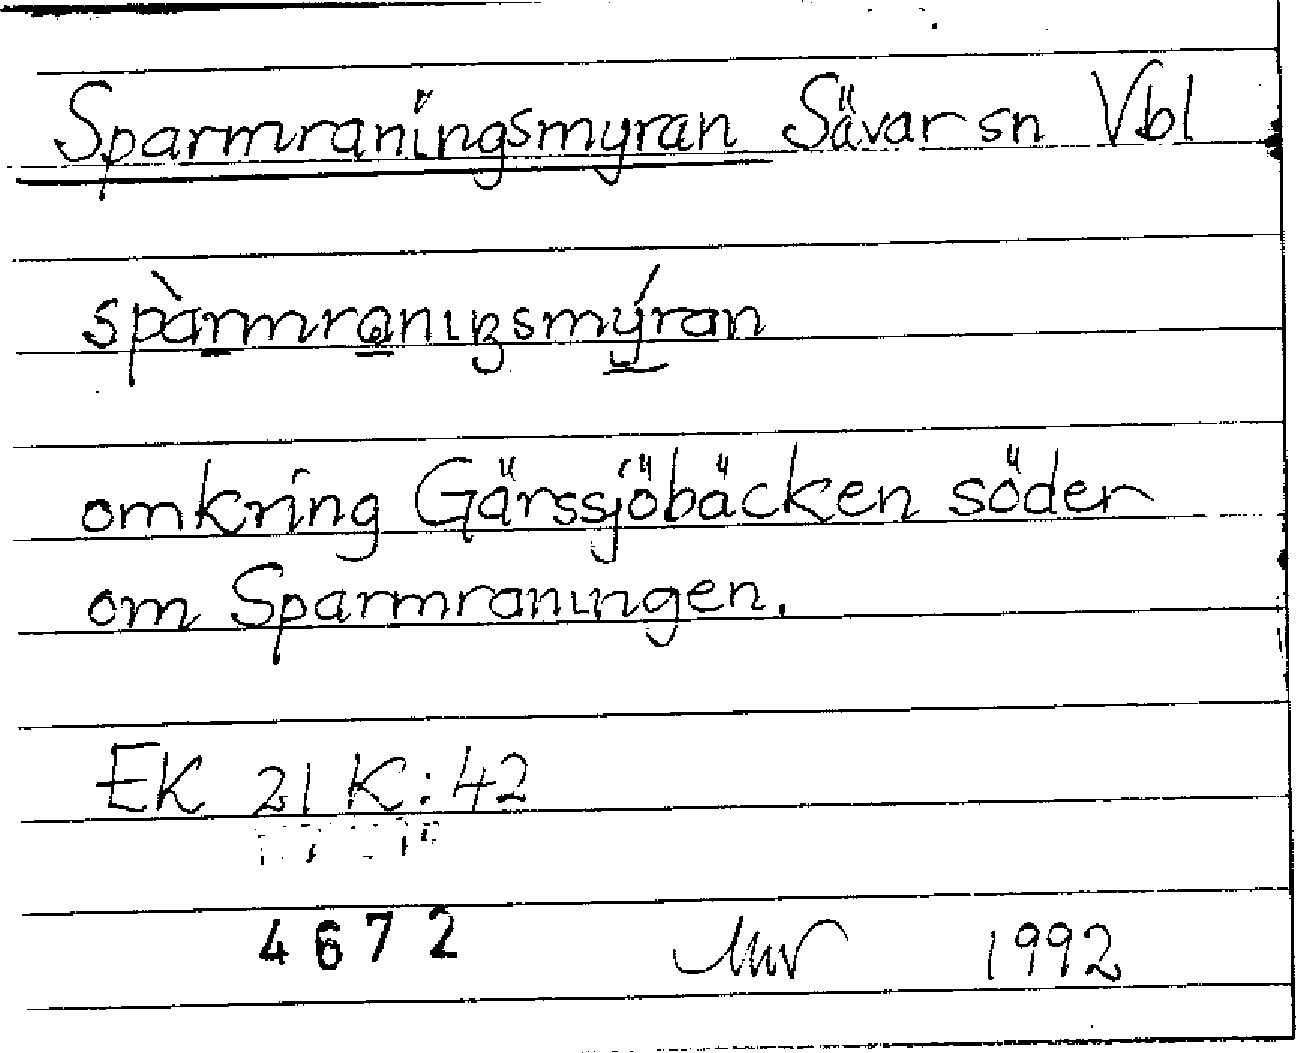 Sparmraningsmyran Sävar sn Vbl
spàrmranıŋsmýran
omkring Gärssjöbäcken söder
om Sparmraningen.
EK 21 K:42
4672 1992